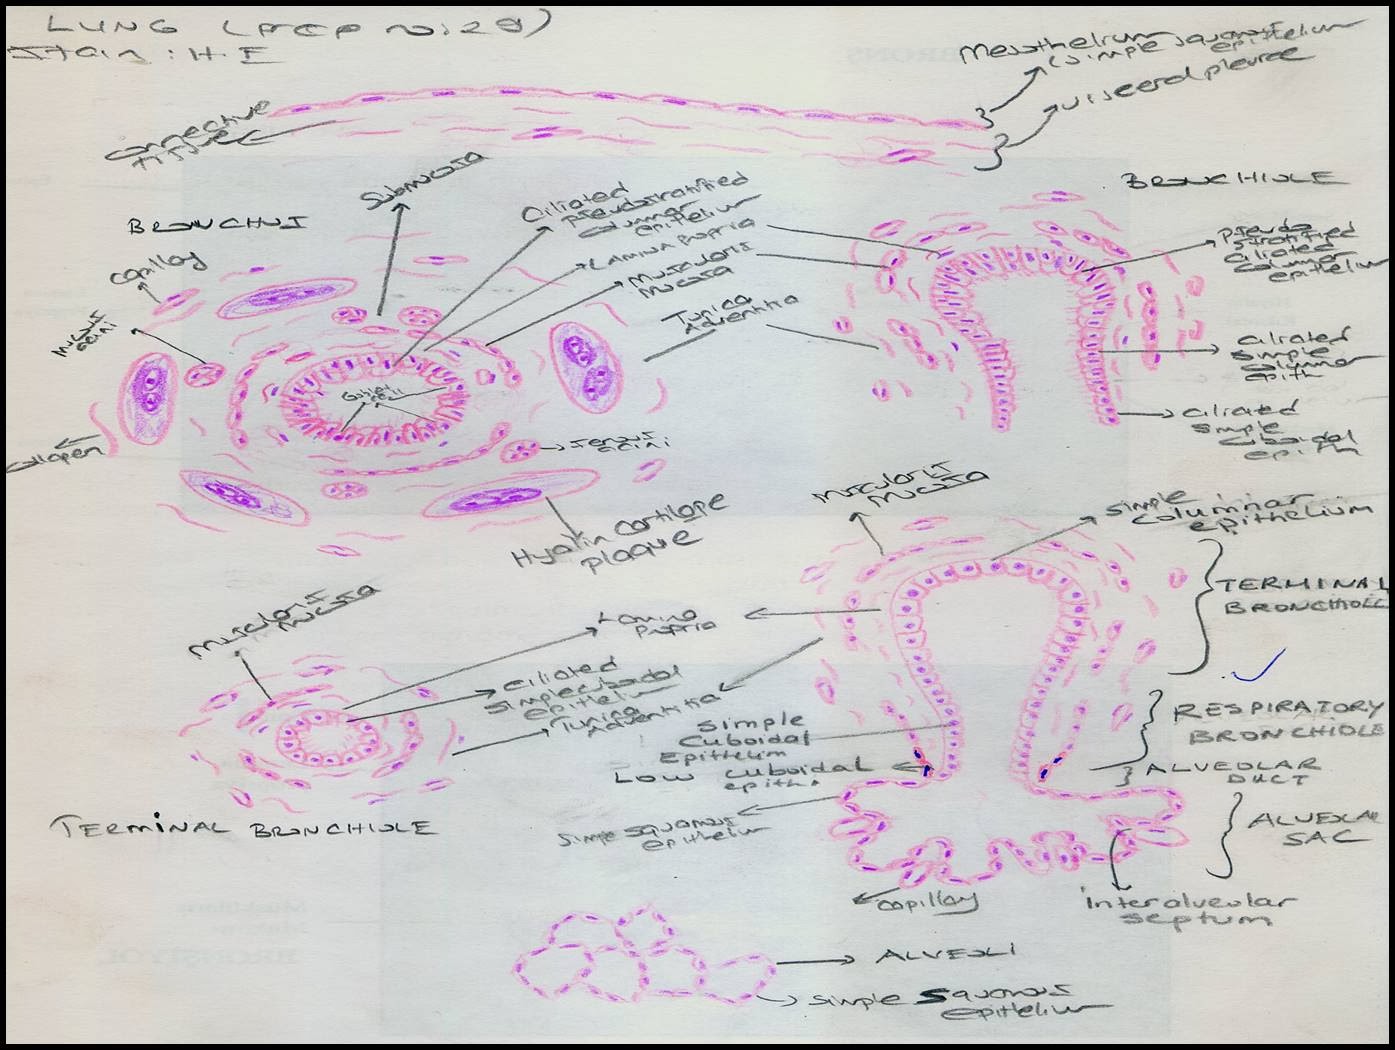 LUNG (prep no:28)
Stain: H.E
Mesothelium
(simple squamous
epithelium
visceral pleurae
Connective
tissue
Submucosa
BRONCHUS
Capillay
Mucous
acini
Ciliated
pseudostratified
columnar
epitelium
Lamina Propria
Muscularis
Mucosa
Tunica
Adventitia
BRONCHIOLE
Pseudo
stratified
ciliated
columnar
epithelium
ciliated
simple
columnar
epith
ciliated
simple
cuboidal
epith
Goblet
cell
serous
acini
collagen
Hyalin cartilage
plaque
Muscularis
Mucosa
simple
columinar
epithelium
TERMINAL
BRONCHIOLE
Muscularis
Mucosa
Lamina
Propria
ciliated
simple cuboidal
epitelium
Tunica
Adventitia
TERMINAL BRONCHIOLE
simple
Cuboidal
Epithelium
Low cuboidal
epith.
simple squamous
epithelium
RESPIRATORY
BRONCHIOLE
ALVEOLAR
DUCT
ALVEOLAR
SAC
capillay
interalveolar
septum
ALVEOLI
simple squamous
epithelium